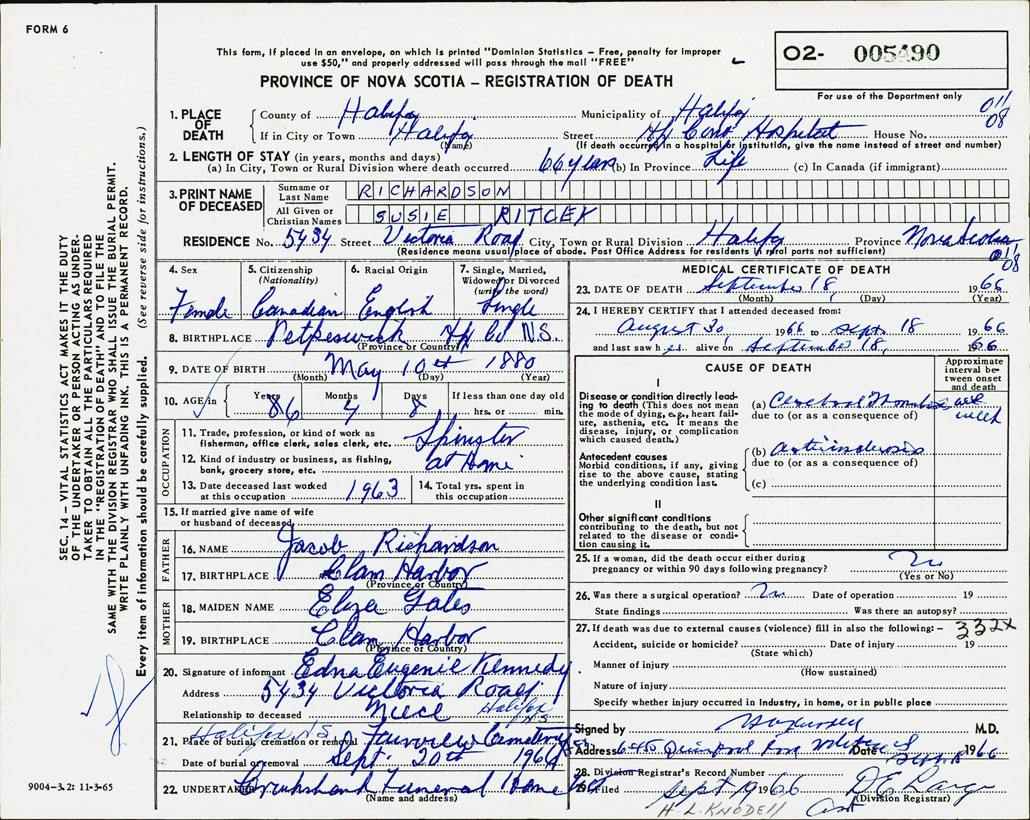 FORM 6
This form, if placed in an envelope, on which is printed "Dominion Statistics – Free, penalty for improper
use $50," and properly addressed will pass through the mail "FREE"
PROVINCE OF NOVA SCOTIA – REGISTRATION OF DEATH
O2- 005490
For use of the Department only
SEC. 14 – VITAL STATISTICS ACT MAKES IT THE DUTY
OF THE UNDERTAKER OR PERSON ACTING AS UNDER-
TAKER TO OBTAIN ALL THE PARTICULARS REQUIRED
IN THE "REGISTRATION OF DEATH" AND TO FILE THE
SAME WITH THE DIVISION REGISTRAR WHO SHALL ISSUE THE BURIAL PERMIT.
WRITE PLAINLY WITH UNFADING INK. THIS IS A PERMANENT RECORD.
Every item of information should be carefully supplied. (See reverse side for instructions.)
1. PLACE OF DEATH County of Halifax Municipality of Halifax 011 08
If in City or Town Halifax Street Hfx Conv Hospital House No.
(Name) (If death occurred in a hospital or institution, give the name instead of street and number)
2. LENGTH OF STAY (in years, months and days)
(a) In City, Town or Rural Division where death occurred 66 years (b) In Province Life (c) In Canada (if immigrant)
3. PRINT NAME OF DECEASED Surname or Last Name RICHARDSON
All Given or Christian Names SUSIE RITCEY
RESIDENCE No. 5434 Street Victoria Road City, Town or Rural Division Halifax Province Nova Scotia
(Residence means usual place of abode. Post Office Address for residents in rural parts not sufficient) 011 08
4. Sex Female
5. Citizenship (Nationality) Canadian
6. Racial Origin English
7. Single, Married, Widowed or Divorced (write the word) Single
8. BIRTHPLACE Petpeswick Hfx Co N.S.
(Province or Country)
9. DATE OF BIRTH May 10th 1880
(Month) (Day) (Year)
10. AGE in Years 86 Months 4 Days 8 If less than one day old hrs. or min.
OCCUPATION
11. Trade, profession, or kind of work as fisherman, office clerk, sales clerk, etc. Spinster
12. Kind of industry or business, as fishing, bank, grocery store, etc. at Home
13. Date deceased last worked at this occupation 1963
14. Total yrs. spent in this occupation
15. If married give name of wife or husband of deceased
FATHER
16. NAME Jacob Richardson
17. BIRTHPLACE Clam Harbor
(Province or Country)
MOTHER
18. MAIDEN NAME Eliza Gates
19. BIRTHPLACE Clam Harbor
(Province or Country)
20. Signature of informant Edna Eugenie Kennedy
Address 5434 Victoria Road Halifax NS
Relationship to deceased Niece
21. Place of burial, cremation or removal Fairview Cemetery Halifax NS
Date of burial or removal Sept. 20th 1966
22. UNDERTAKER Cruikshank Funeral Home Ltd
(Name and address)
9004–3.2: 11-3-65
MEDICAL CERTIFICATE OF DEATH
23. DATE OF DEATH September 18, 1966
(Month) (Day) (Year)
24. I HEREBY CERTIFY that I attended deceased from:
August 30 1966 to Sept 18 1966
and last saw her alive on September 18, 1966
CAUSE OF DEATH
Approximate interval between onset and death
I
Disease or condition directly leading to death (This does not mean the mode of dying, e.g., heart failure, asthenia, etc. It means the disease, injury, or complication which caused death.)
(a) Cerebral Thrombosis week
due to (or as a consequence of)
Antecedent causes
Morbid conditions, if any, giving rise to the above cause, stating the underlying condition last.
(b) Arteriosclerosis
due to (or as a consequence of)
(c)
II
Other significant conditions contributing to the death, but not related to the disease or condition causing it.
25. If a woman, did the death occur either during pregnancy or within 90 days following pregnancy? No
(Yes or No)
26. Was there a surgical operation? No Date of operation 19
State findings Was there an autopsy?
27. If death was due to external causes (violence) fill in also the following:– 332X
Accident, suicide or homicide? Date of injury 19
(State which)
Manner of injury
(How sustained)
Nature of injury
Specify whether injury occurred in industry, in home, or in public place
Signed by M.D.
Address 6445 Quinpool Road Halifax NS Date Sept 18 1966
28. Division Registrar's Record Number
29. Filed Sept 19 1966 D E Large
(Division Registrar)
H. L. KNODELL